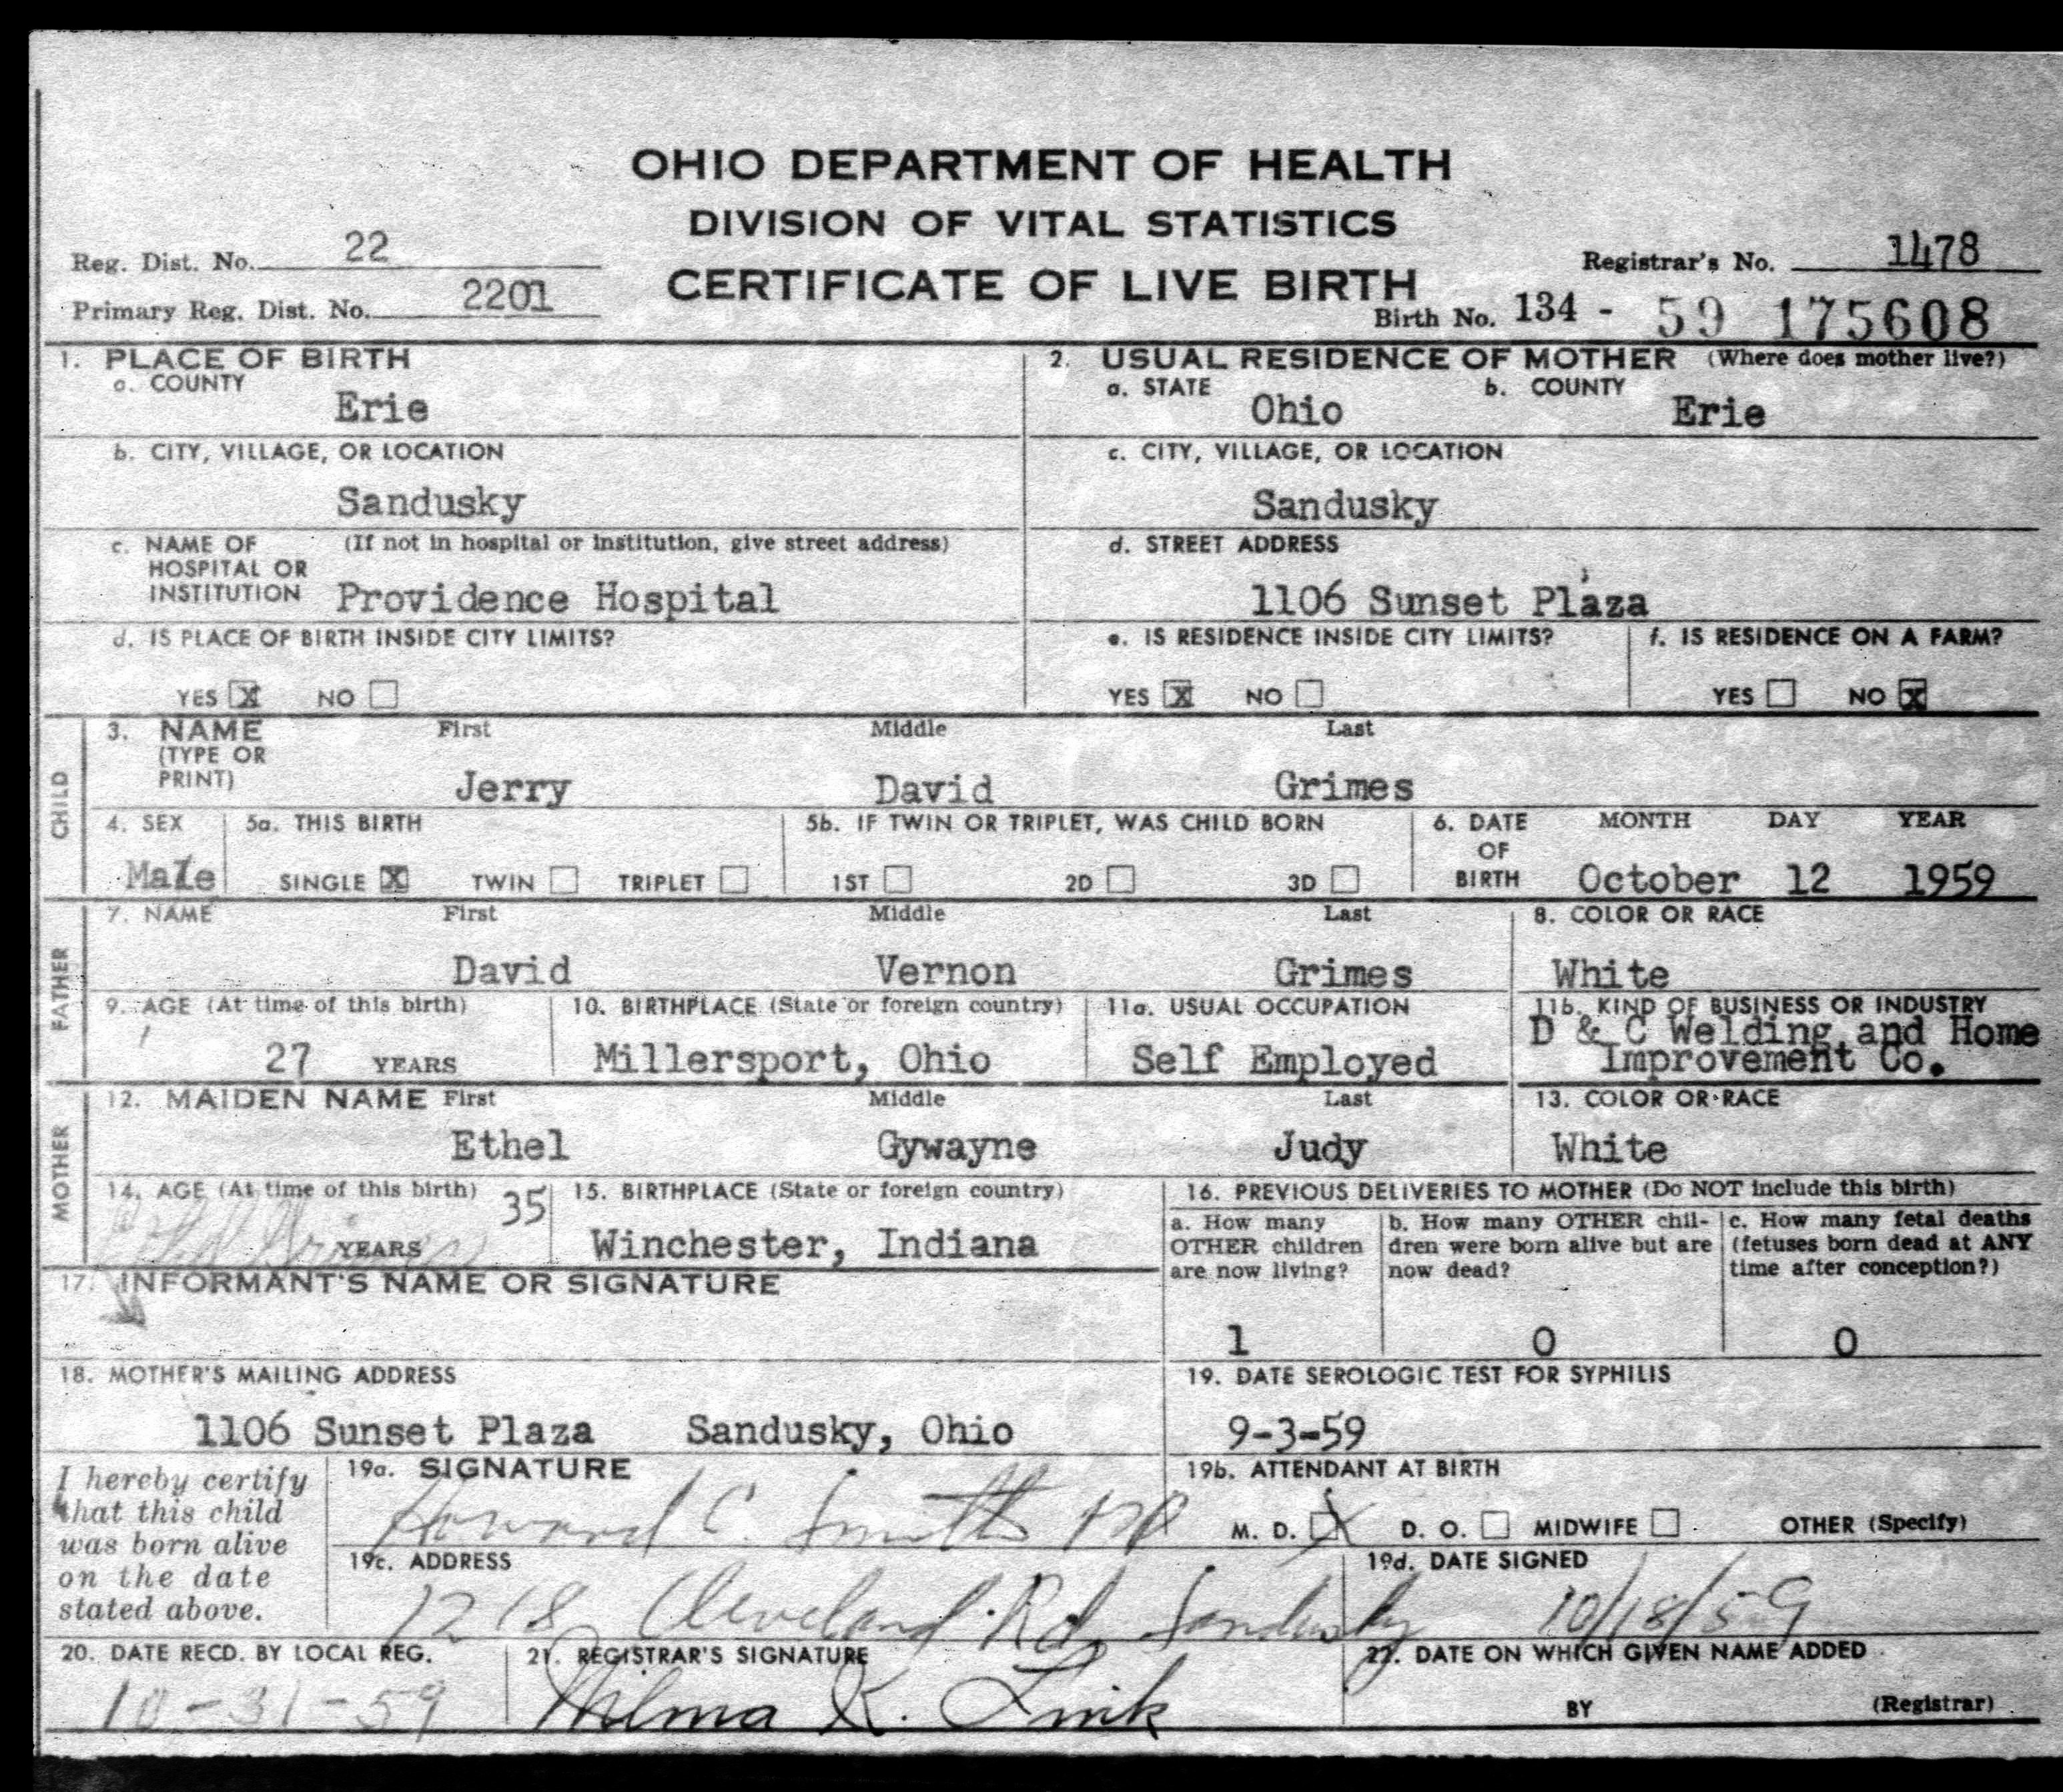 OHIO DEPARTMENT OF HEALTH
DIVISION OF VITAL STATISTICS
CERTIFICATE OF LIVE BIRTH
Reg. Dist. No. 22
Primary Reg. Dist. No. 2201
Registrar's No. 1478
Birth No. 134 - 59 175608
1. PLACE OF BIRTH
a. COUNTY
Erie
b. CITY, VILLAGE, OR LOCATION
Sandusky
c. NAME OF HOSPITAL OR INSTITUTION (If not in hospital or institution, give street address)
Providence Hospital
d. IS PLACE OF BIRTH INSIDE CITY LIMITS?
YES X NO
2. USUAL RESIDENCE OF MOTHER (Where does mother live?)
a. STATE Ohio b. COUNTY Erie
c. CITY, VILLAGE, OR LOCATION
Sandusky
d. STREET ADDRESS
1106 Sunset Plaza
e. IS RESIDENCE INSIDE CITY LIMITS? f. IS RESIDENCE ON A FARM?
YES X NO YES NO X
CHILD
3. NAME (TYPE OR PRINT) First Middle Last
Jerry David Grimes
4. SEX 5a. THIS BIRTH 5b. IF TWIN OR TRIPLET, WAS CHILD BORN 6. DATE OF BIRTH MONTH DAY YEAR
Male SINGLE X TWIN TRIPLET 1ST 2D 3D October 12 1959
FATHER
7. NAME First Middle Last 8. COLOR OR RACE
David Vernon Grimes White
9. AGE (At time of this birth) 10. BIRTHPLACE (State or foreign country) 11a. USUAL OCCUPATION 11b. KIND OF BUSINESS OR INDUSTRY
27 YEARS Millersport, Ohio Self Employed D & C Welding and Home
Improvement Co.
MOTHER
12. MAIDEN NAME First Middle Last 13. COLOR OR RACE
Ethel Gywayne Judy White
14. AGE (At time of this birth) 35 YEARS 15. BIRTHPLACE (State or foreign country)
Winchester, Indiana
16. PREVIOUS DELIVERIES TO MOTHER (Do NOT include this birth)
a. How many OTHER children are now living?
1
b. How many OTHER chil-
dren were born alive but are
now dead?
0
c. How many fetal deaths
(fetuses born dead at ANY
time after conception?)
0
17. INFORMANT'S NAME OR SIGNATURE
18. MOTHER'S MAILING ADDRESS
1106 Sunset Plaza Sandusky, Ohio
19. DATE SEROLOGIC TEST FOR SYPHILIS
9-3-59
I hereby certify
that this child
was born alive
on the date
stated above.
19a. SIGNATURE
Howard C. Smith MD
19b. ATTENDANT AT BIRTH
M. D. X D. O. MIDWIFE OTHER (Specify)
19c. ADDRESS
1218 Cleveland Rd, Sandusky
19d. DATE SIGNED
10/18/59
20. DATE RECD. BY LOCAL REG.
10-31-59
21. REGISTRAR'S SIGNATURE
Wilma K. Link
22. DATE ON WHICH GIVEN NAME ADDED
BY (Registrar)